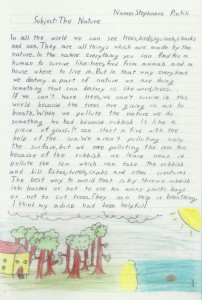 Name: Stephanos P
Subject: The Nature
In all the world we can see trees, birds, clouds
and sea. They are all things which are made by the
nature. In the nature everything you can find for a
human to survive like: trees, food from animals and a
house where to live in. But in that way every time
we destroy a part of nature we are doing
something that can destroy us like wrong trees.
If we can't have trees, we can't survive in this
world because the trees are giving us air to
breath. When we pollute the nature we do
something so bad because rubbish like a
piece of glass it can start a fire with the
help of the sun. We aren't polluting only
the surface, but we are polluting the sea too
because of the rubbish we leave near it
pollute the sea which can take the rubbish
and kill fishes, turtles, crabs and other creatures
The best way to avoid that is by throwing rubbish
into bashes or not to use too many plastic bags
or not to cut trees. They can help us breathing.
I think my advice had been helpful!